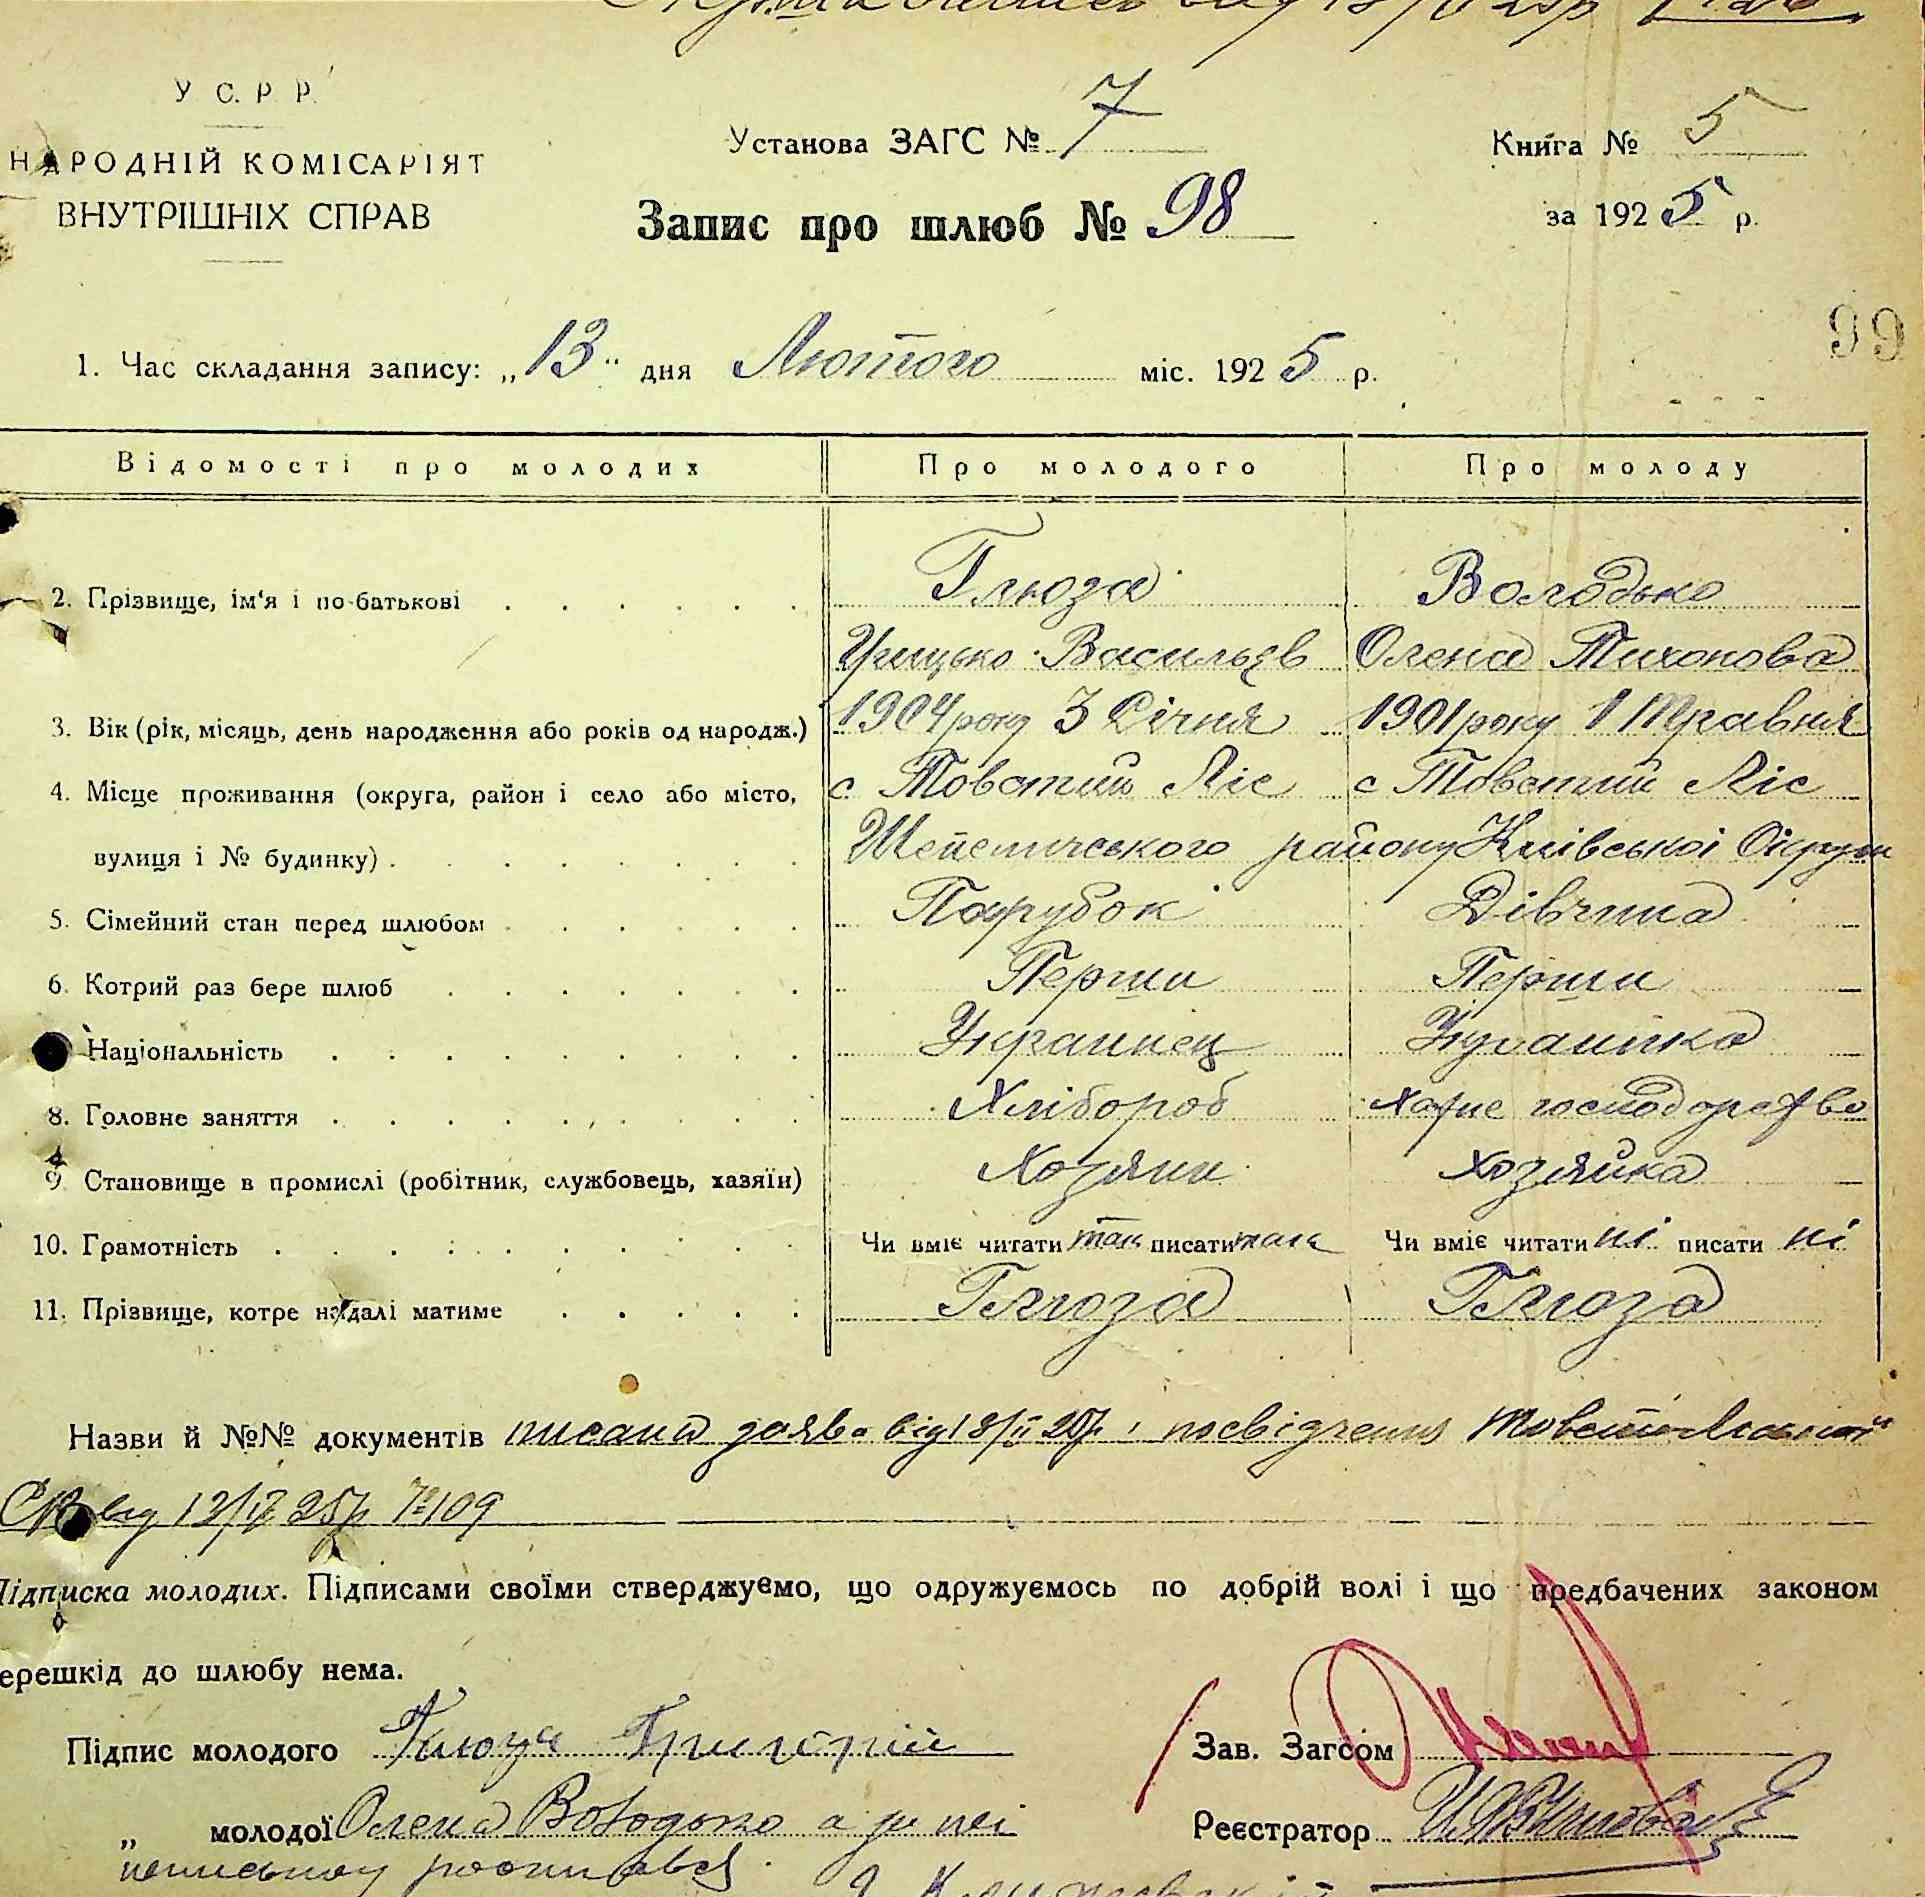 У С. Р. Р.
НАРОДНІЙ КОМІСАРІЯТ
ВНУТРІШНІХ СПРАВ
Установа ЗАГС № 7
Запис про шлюб № 98
Книга № 5
за 1925 р.
99
1. Час складання запису: „13" дня Лютого міс. 1925 р.
Відомості про молодих Про молодого Про молоду
2. Прізвище, ім'я і по-батькові Глюза Володько
Грицько Васильєв Олена Тихонова
3. Вік (рік, місяць, день народження або років од народж.) 1904 року 3 Січня 1901 року 1 Травня
4. Місце проживання (округа, район і село або місто, с Товстий Ліс с Товстий Ліс
вулиця і № будинку) Шепеличського району Київської Округи
5. Сімейний стан перед шлюбом Парубок Дівчина
6. Котрий раз бере шлюб Перши Перши
Національність Украинец Украинка
8. Головне заняття Хлібороб хатне господарство
9. Становище в промислі (робітник, службовець, хазяїн) Хозяин хозяйка
10. Грамотність Чи вміє читати так писати так Чи вміє читати ні писати ні
11. Прізвище, котре надалі матиме Глюза Глюза
Назви й №№ документів писана заява від і посвідчення
від 12/II 25р № 109
Підписка молодих. Підписами своїми стверджуємо, що одружуємось по добрій волі і що предбачених законом
ерешкід до шлюбу нема.
Підпис молодого Глюза Григорій
Зав. Загсом
„ молодої Олена Володько а за неі
Реєстратор
росписався